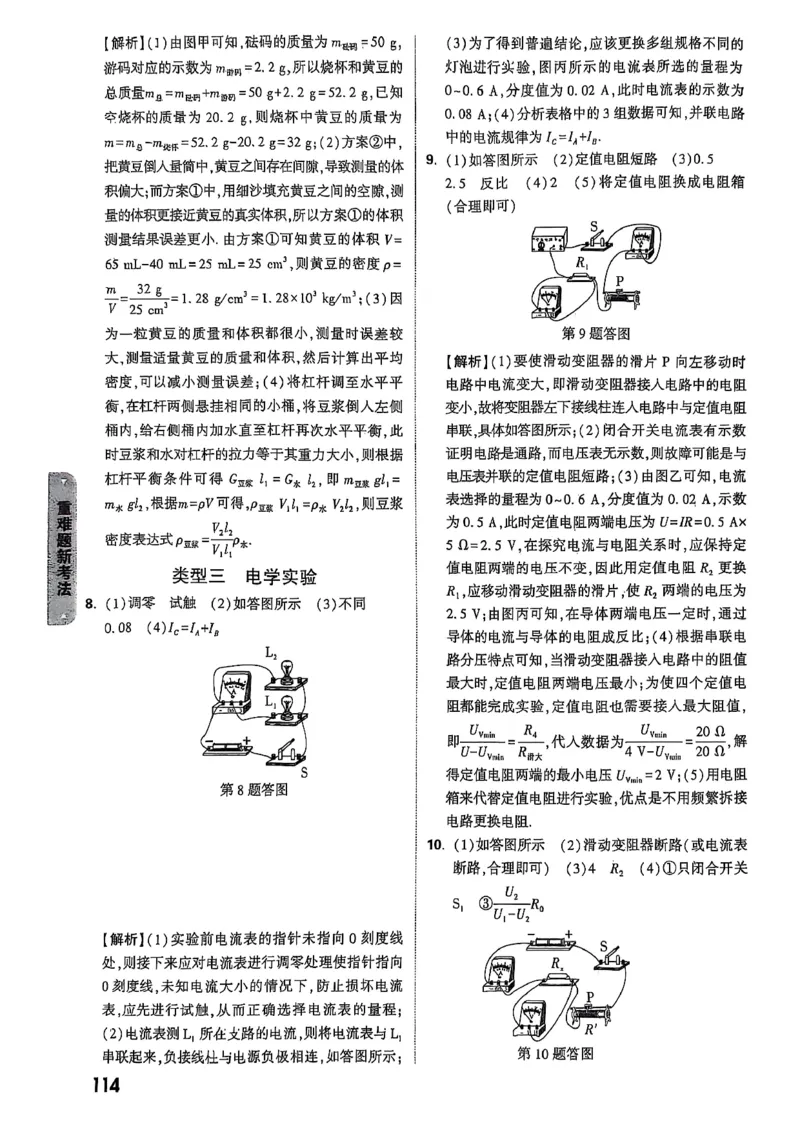 【解析】(1)由图甲可知,砝码的质量为m砝码=50 g,
游码对应的示数为m游码=2.2 g,所以烧杯和黄豆的
总质量m总=m砝码+m游码=50 g+2.2 g=52.2 g,已知
空烧杯的质量为 20.2 g,则烧杯中黄豆的质量为
m=m总-m烧杯=52.2 g-20.2 g=32 g;(2)方案②中,
把黄豆倒入量筒中,黄豆之间存在间隙,导致测量的体
积偏大;而方案①中,用细沙填充黄豆之间的空隙,测
量的体积更接近黄豆的真实体积,所以方案①的体积
测量结果误差更小. 由方案①可知黄豆的体积 V=
65 mL-40 mL=25 mL=25 cm³,则黄豆的密度ρ=
m/V=32 g/25 cm³=1.28 g/cm³=1.28×10³ kg/m³;(3)因
为一粒黄豆的质量和体积都很小,测量时误差较
大,测量适量黄豆的质量和体积,然后计算出平均
密度,可以减小测量误差;(4)将杠杆调至水平平
衡,在杠杆两侧悬挂相同的小桶,将豆浆倒入左侧
桶内,给右侧桶内加水直至杠杆再次水平平衡,此
时豆浆和水对杠杆的拉力等于其重力大小,则根据
杠杆平衡条件可得 G豆浆 l₁=G水 l₂,即 m豆浆 gl₁=
m水 gl₂,根据m=ρV可得,ρ豆浆 V₁l₁=ρ水 V₂l₂,则豆浆
密度表达式ρ豆浆=V₂l₂/V₁l₁ρ水.
类型三 电学实验
8. (1)调零 试触 (2)如答图所示 (3)不同
0.08 (4)I_C=I_A+I_B
L₂
L₁
- +
S
第 8 题答图
【解析】(1)实验前电流表的指针未指向 0 刻度线
处,则接下来应对电流表进行调零处理使指针指向
0 刻度线,未知电流大小的情况下,防止损坏电流
表,应先进行试触,从而正确选择电流表的量程;
(2)电流表测 L₁ 所在支路的电流,则将电流表与 L₁
串联起来,负接线柱与电源负极相连,如答图所示;
重难题新考法
114
(3)为了得到普遍结论,应该更换多组规格不同的
灯泡进行实验,图丙所示的电流表所选的量程为
0~0.6 A,分度值为 0.02 A,此时电流表的示数为
0.08 A;(4)分析表格中的 3 组数据可知,并联电路
中的电流规律为 I_C=I_A+I_B.
9. (1)如答图所示 (2)定值电阻短路 (3)0.5
2.5 反比 (4)2 (5)将定值电阻换成电阻箱
(合理即可)
S
R₁
P
第 9 题答图
【解析】(1)要使滑动变阻器的滑片 P 向左移动时
电路中电流变大,即滑动变阻器接入电路中的电阻
变小,故将变阻器左下接线柱连入电路中与定值电阻
串联,具体如答图所示;(2)闭合开关电流表有示数
证明电路是通路,而电压表无示数,则故障可能是与
电压表并联的定值电阻短路;(3)由图乙可知,电流
表选择的量程为 0~0.6 A,分度值为 0.02 A,示数
为 0.5 A,此时定值电阻两端电压为 U=IR=0.5 A×
5 Ω=2.5 V,在探究电流与电阻关系时,应保持定
值电阻两端的电压不变,因此用定值电阻 R₂ 更换
R₁,应移动滑动变阻器的滑片,使 R₂ 两端的电压为
2.5 V;由图丙可知,在导体两端电压一定时,通过
导体的电流与导体的电阻成反比;(4)根据串联电
路分压特点可知,当滑动变阻器接入电路中的阻值
最大时,定值电阻两端电压最小;为使四个定值电
阻都能完成实验,定值电阻也需要接入最大阻值,
即U_Vmin/(U-U_Vmin)=R₄/R滑大,代入数据为U_Vmin/(4 V-U_Vmin)=20 Ω/20 Ω,解
得定值电阻两端的最小电压 U_Vmin=2 V;(5)用电阻
箱来代替定值电阻进行实验,优点是不用频繁拆接
电路更换电阻.
10. (1)如答图所示 (2)滑动变阻器断路(或电流表
断路,合理即可) (3)4 R₂ (4)①只闭合开关
S₁ ③U₂/(U₁-U₂)R₀
- +
S
Rₓ
P
R'
第 10 题答图